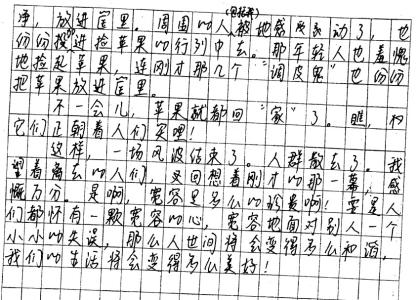 净，放进筐里。周围的人被她感动了，也
纷纷投进捡苹果的行列中去。那年轻人也羞愧
地捡起苹果，连刚才那几个“调皮鬼”也纷纷
把苹果放进筐里。
不一会儿，苹果就都回“家”了。瞧，
它们正朝着人们笑哩！
这样，一场风波结束了。人群散去了。我
望着离去的人们，又回想着刚才的那一幕，感
慨万分。是啊，宽容是多么的珍贵啊！要是人
们都怀有一颗宽容的心，宽容地面对别人一个
小小的失误，那么人世间将会变得多么和谐，
我们的生活将会变得多么美好！